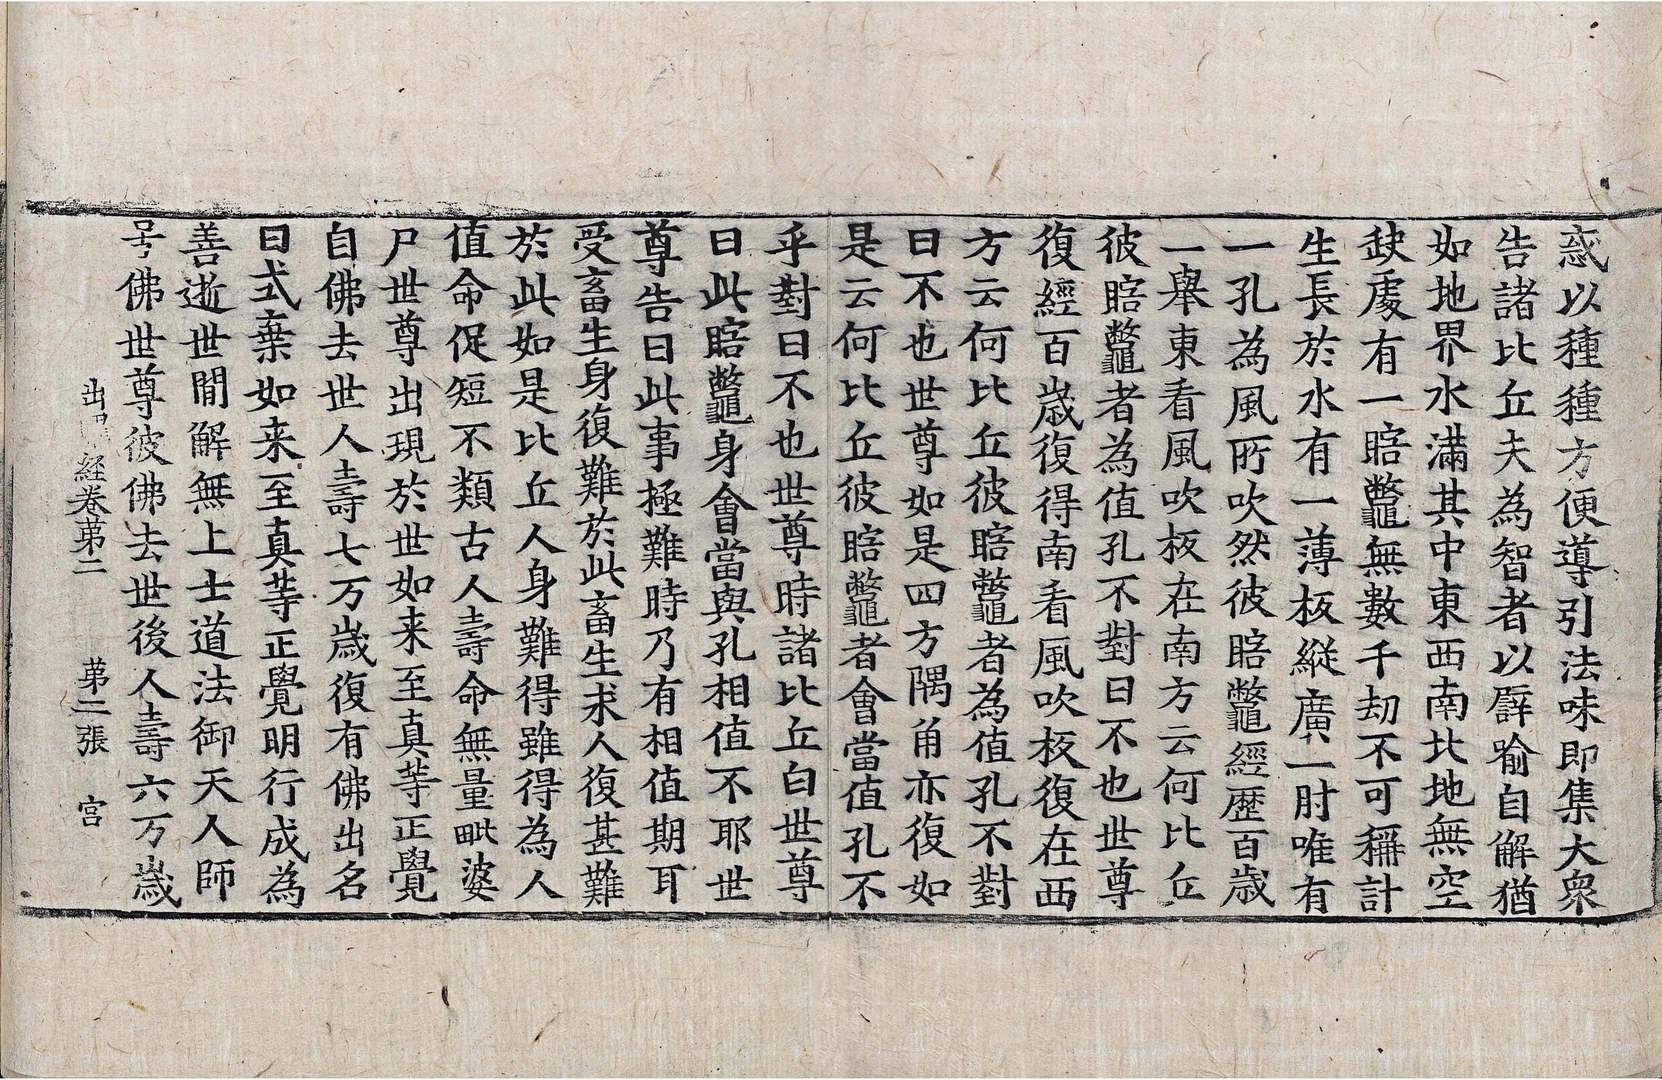 惑以種種方便導引法味即集大衆
告諸比丘夫為智者以辟喻自解猶
如地界水滿其中東西南北地無空
缺處有一瞎鼈無數千劫不可稱計
生長於水有一薄板縱廣一肘唯有
一孔為風所吹然彼瞎鼈經歷百歲
一舉東看風吹板在南方云何比丘
彼瞎鼈者為值孔不對曰不也世尊
復經百歲復得南看風吹板復在西
方云何比丘彼瞎鼈者為值孔不對
曰不也世尊如是四方隅角亦復如
是云何比丘彼瞎鼈者會當值孔不
乎對曰不也世尊時諸比丘白世尊
曰此瞎鼈身會當與孔相值不耶世
尊告曰此事極難時乃有相值期耳
受畜生身復難於此畜生求人復甚難
於此如是比丘人身難得雖得為人
值命促短不類古人壽命無量毗婆
尸世尊出現於世如来至真等正覺
自佛去世人壽七万歲復有佛出名
曰式棄如来至真等正覺明行成為
善逝世間解無上士道法御天人師
号佛世尊彼佛去世後人壽六万歲
出曜経卷苐二　苐二張　宮